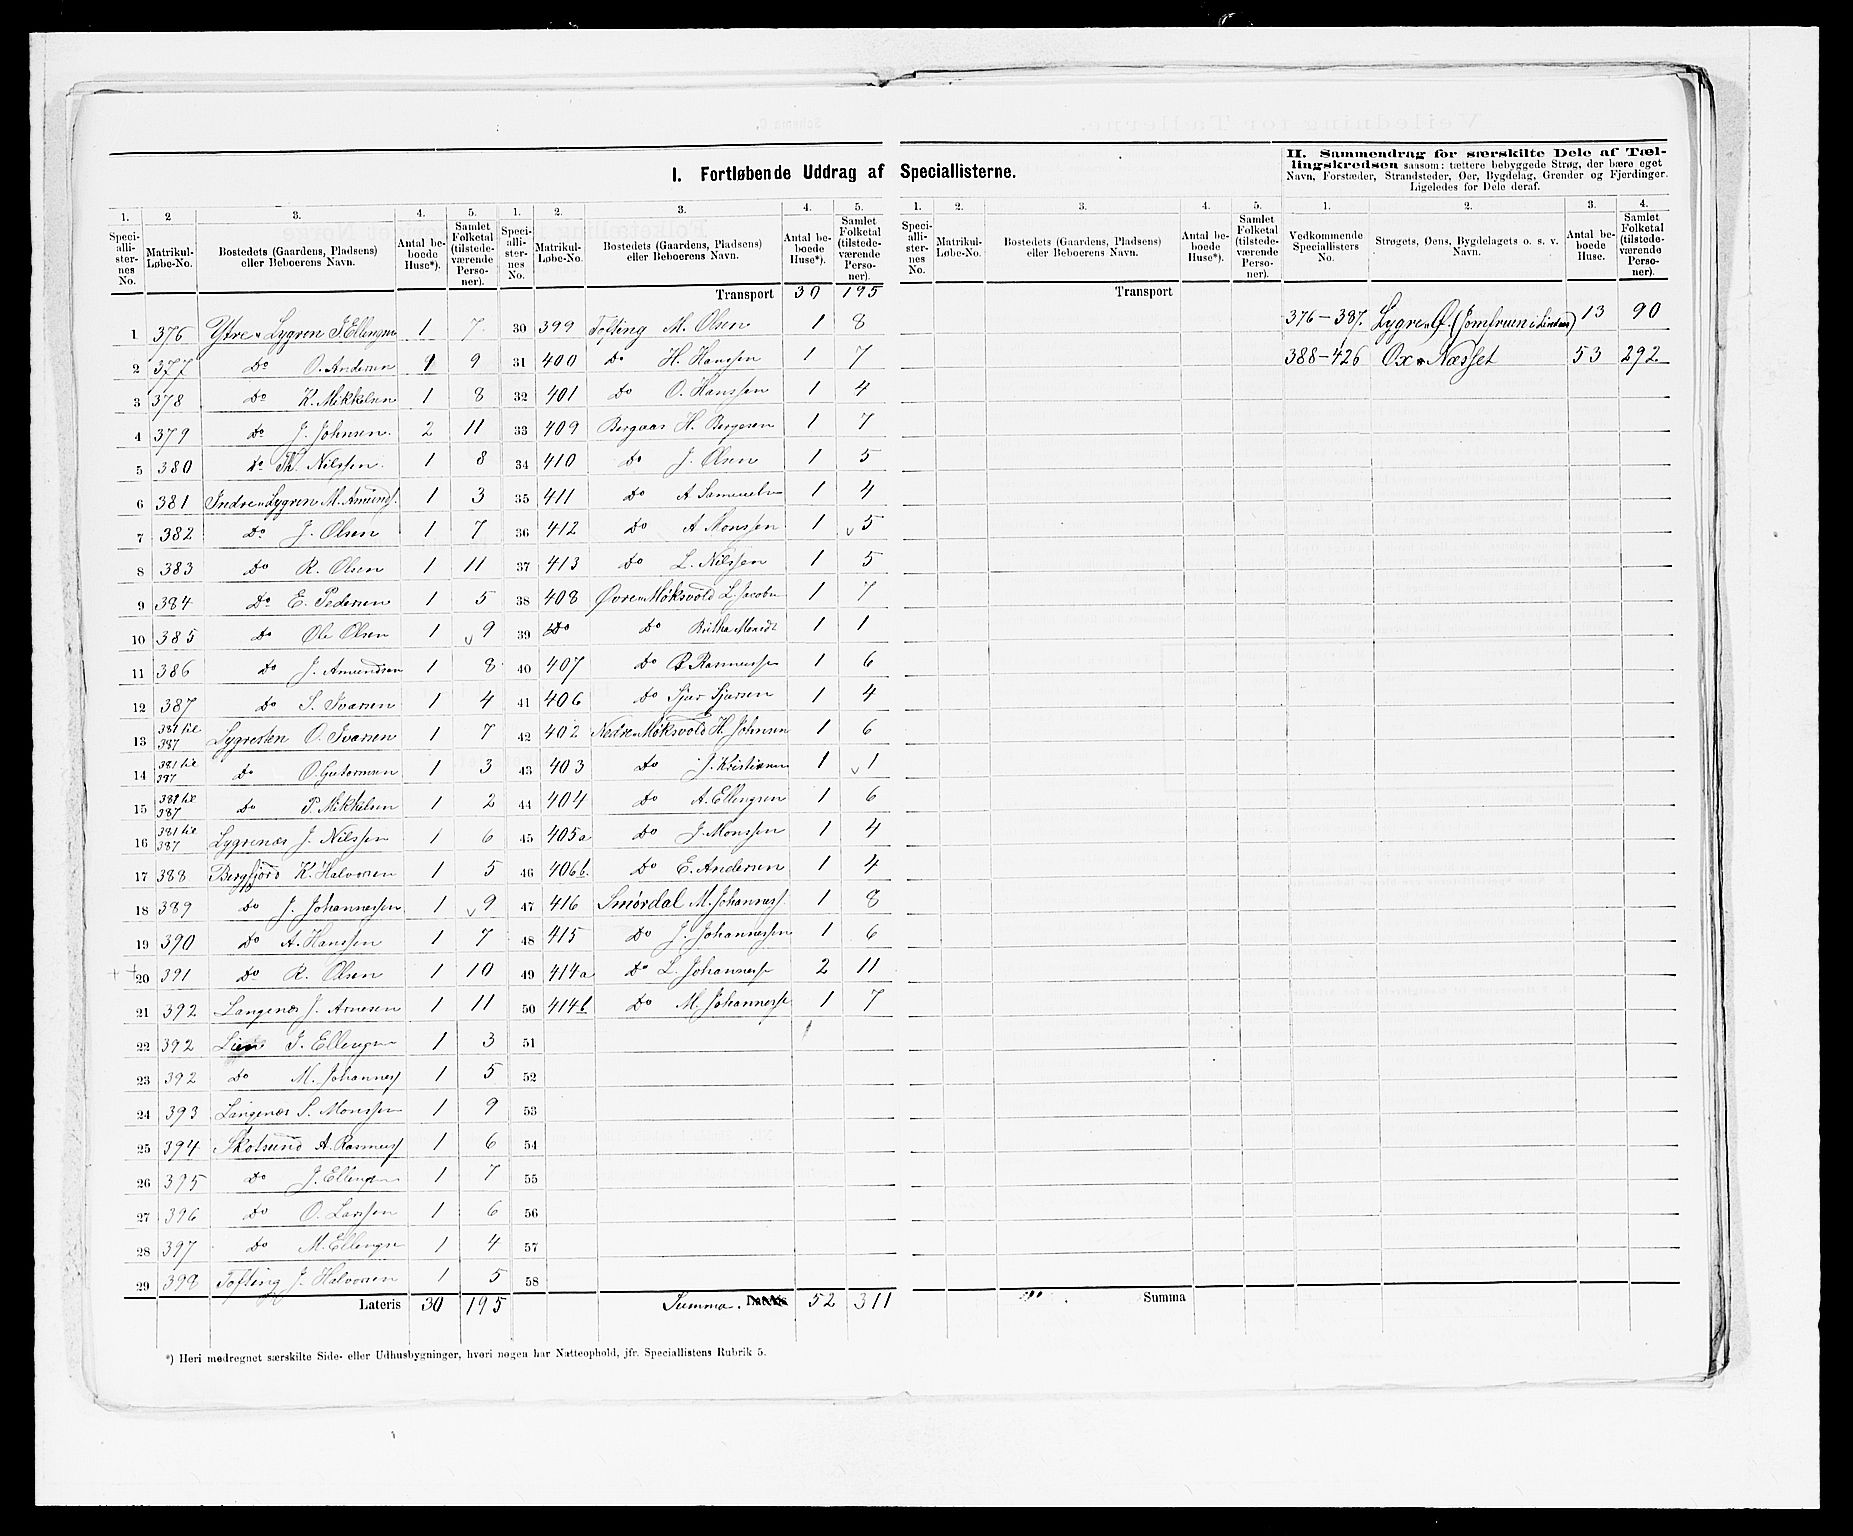 I. Fortløbende Uddrag af Speciallisterne.
II. Sammendrag for særskilte Dele af Tællingskredsen saasom: tættere bebyggede Strøg, der bære eget Navn, Forstæder, Strandsteder, Øer, Bygdelag, Grender og Fjerdinger. Ligeledes for Dele deraf.
1. 2 3. 4. 5. 1. 2. 3. 4. 5. 1. 2. 3. 4. 5. 1. 2. 3. 4.
Speciallisternes No. Matrikul-Løbe-No. Bostedets (Gaardens, Pladsens) eller Beboerens Navn. Antal beboede Huse*). Samlet Folketal (tilstedeværende Personer).
Speciallisternes No. Matrikul-Løbe-No. Bostedets (Gaardens, Pladsens) eller Beboerens Navn. Antal beboede Huse*). Samlet Folketal (tilstedeværende Personer).
Speciallisternes No. Matrikul-Løbe-No. Bostedets (Gaardens, Pladsens) eller Beboerens Navn. Antal beboede Huse*). Samlet Folketal (tilstedeværende Personer).
Vedkommende Speciallisters No. Strøgets, Øens, Bygdelagets o. s. v. Navn. Antal beboede Huse. Samlet Folketal (tilstedeværende Personer).
1 376 Ytre Lygren J. Ellingsen 1 7
2 377 Do O. Andersen 1 9
3 378 Do K. Mikkelsen 1 8
4 379 Do J. Johnsen 2 11
5 380 Do Th. Nilssen 1 8
6 381 Indre Lygren M. Amunds. 1 3
7 382 Do J. Olsen 1 7
8 383 Do R. Olsen 1 11
9 384 Do E. Pedersen 1 5
10 385 Do Ole Olsen 1 9
11 386 Do J. Amundsen 1 8
12 387 Do S. Ivarsen 1 4
13 381 til 387 Lygresten O. Ivarsen 1 7
14 381 til 387 Do O. Guttormsen 1 3
15 381 til 387 Do P. Mikkelsen 1 2
16 381 til 387 Lygrenæs J. Nilssen 1 6
17 388 Bergfjord K. Halvorsen 1 5
18 389 Do J. Johannessen 1 9
19 390 Do A. Hanssen 1 7
20 391 Do R. Olsen 1 10
21 392 Langenæs J. Arnesen 1 11
22 392 J. Ellingsen 1 3
23 392 Do M. Johanness 1 5
24 393 Langenæs S. Monssen 1 9
25 394 Skotsund A. Rasmuss 1 6
26 395 Do J. Ellingsen 1 7
27 396 Do O. Larssen 1 6
28 397 Do M. Ellingsen 1 4
29 398 Tofting J. Halvorsen 1 5
Lateris 30 195
Transport 30 195
30 399 Tofting M. Olsen 1 8
31 400 Do H. Hanssen 1 7
32 401 Do O. Hanssen 1 4
33 409 Bergaas H. Bergesen 1 7
34 410 Do J. Olsen 1 5
35 411 Do A Samuelsen 1 4
36 412 Do A Monssen 1 5
37 413 Do L. Nilssen 1 5
38 408 Øvre Møksvold L. Jacobsen 1 7
39 Do Do Britha Monsdt 1 1
40 407 Do R Rasmuss 1 6
41 406 Do Sjur Sjursen 1 4
42 402 Nedre Møksvold H. Johnsen 1 6
43 403 Do J. Kristiansen 1 1
44 404 Do A. Ellingsen 1 6
45 405a Do J. Monssen 1 4
46 406b. Do E. Andersen 1 4
47 416 Smørdal M. Johanness. 1 8
48 415 Do J. Johannessen 1 6
49 414a Do L. Johanness 2 11
50 414b Do M. Johanness 1 7
51
52
53
54
55
56
57
58
Summa. 52 311
Transport
Summa
376-387. Lygre Ø. (Jomfruen i Lindaas) 13 90
388-426 Ox Næsset 53 292
*) Heri medregnet særskilte Side- eller Udhusbygninger, hvori nogen har Natteophold, jfr. Speciallistens Rubrik 5.